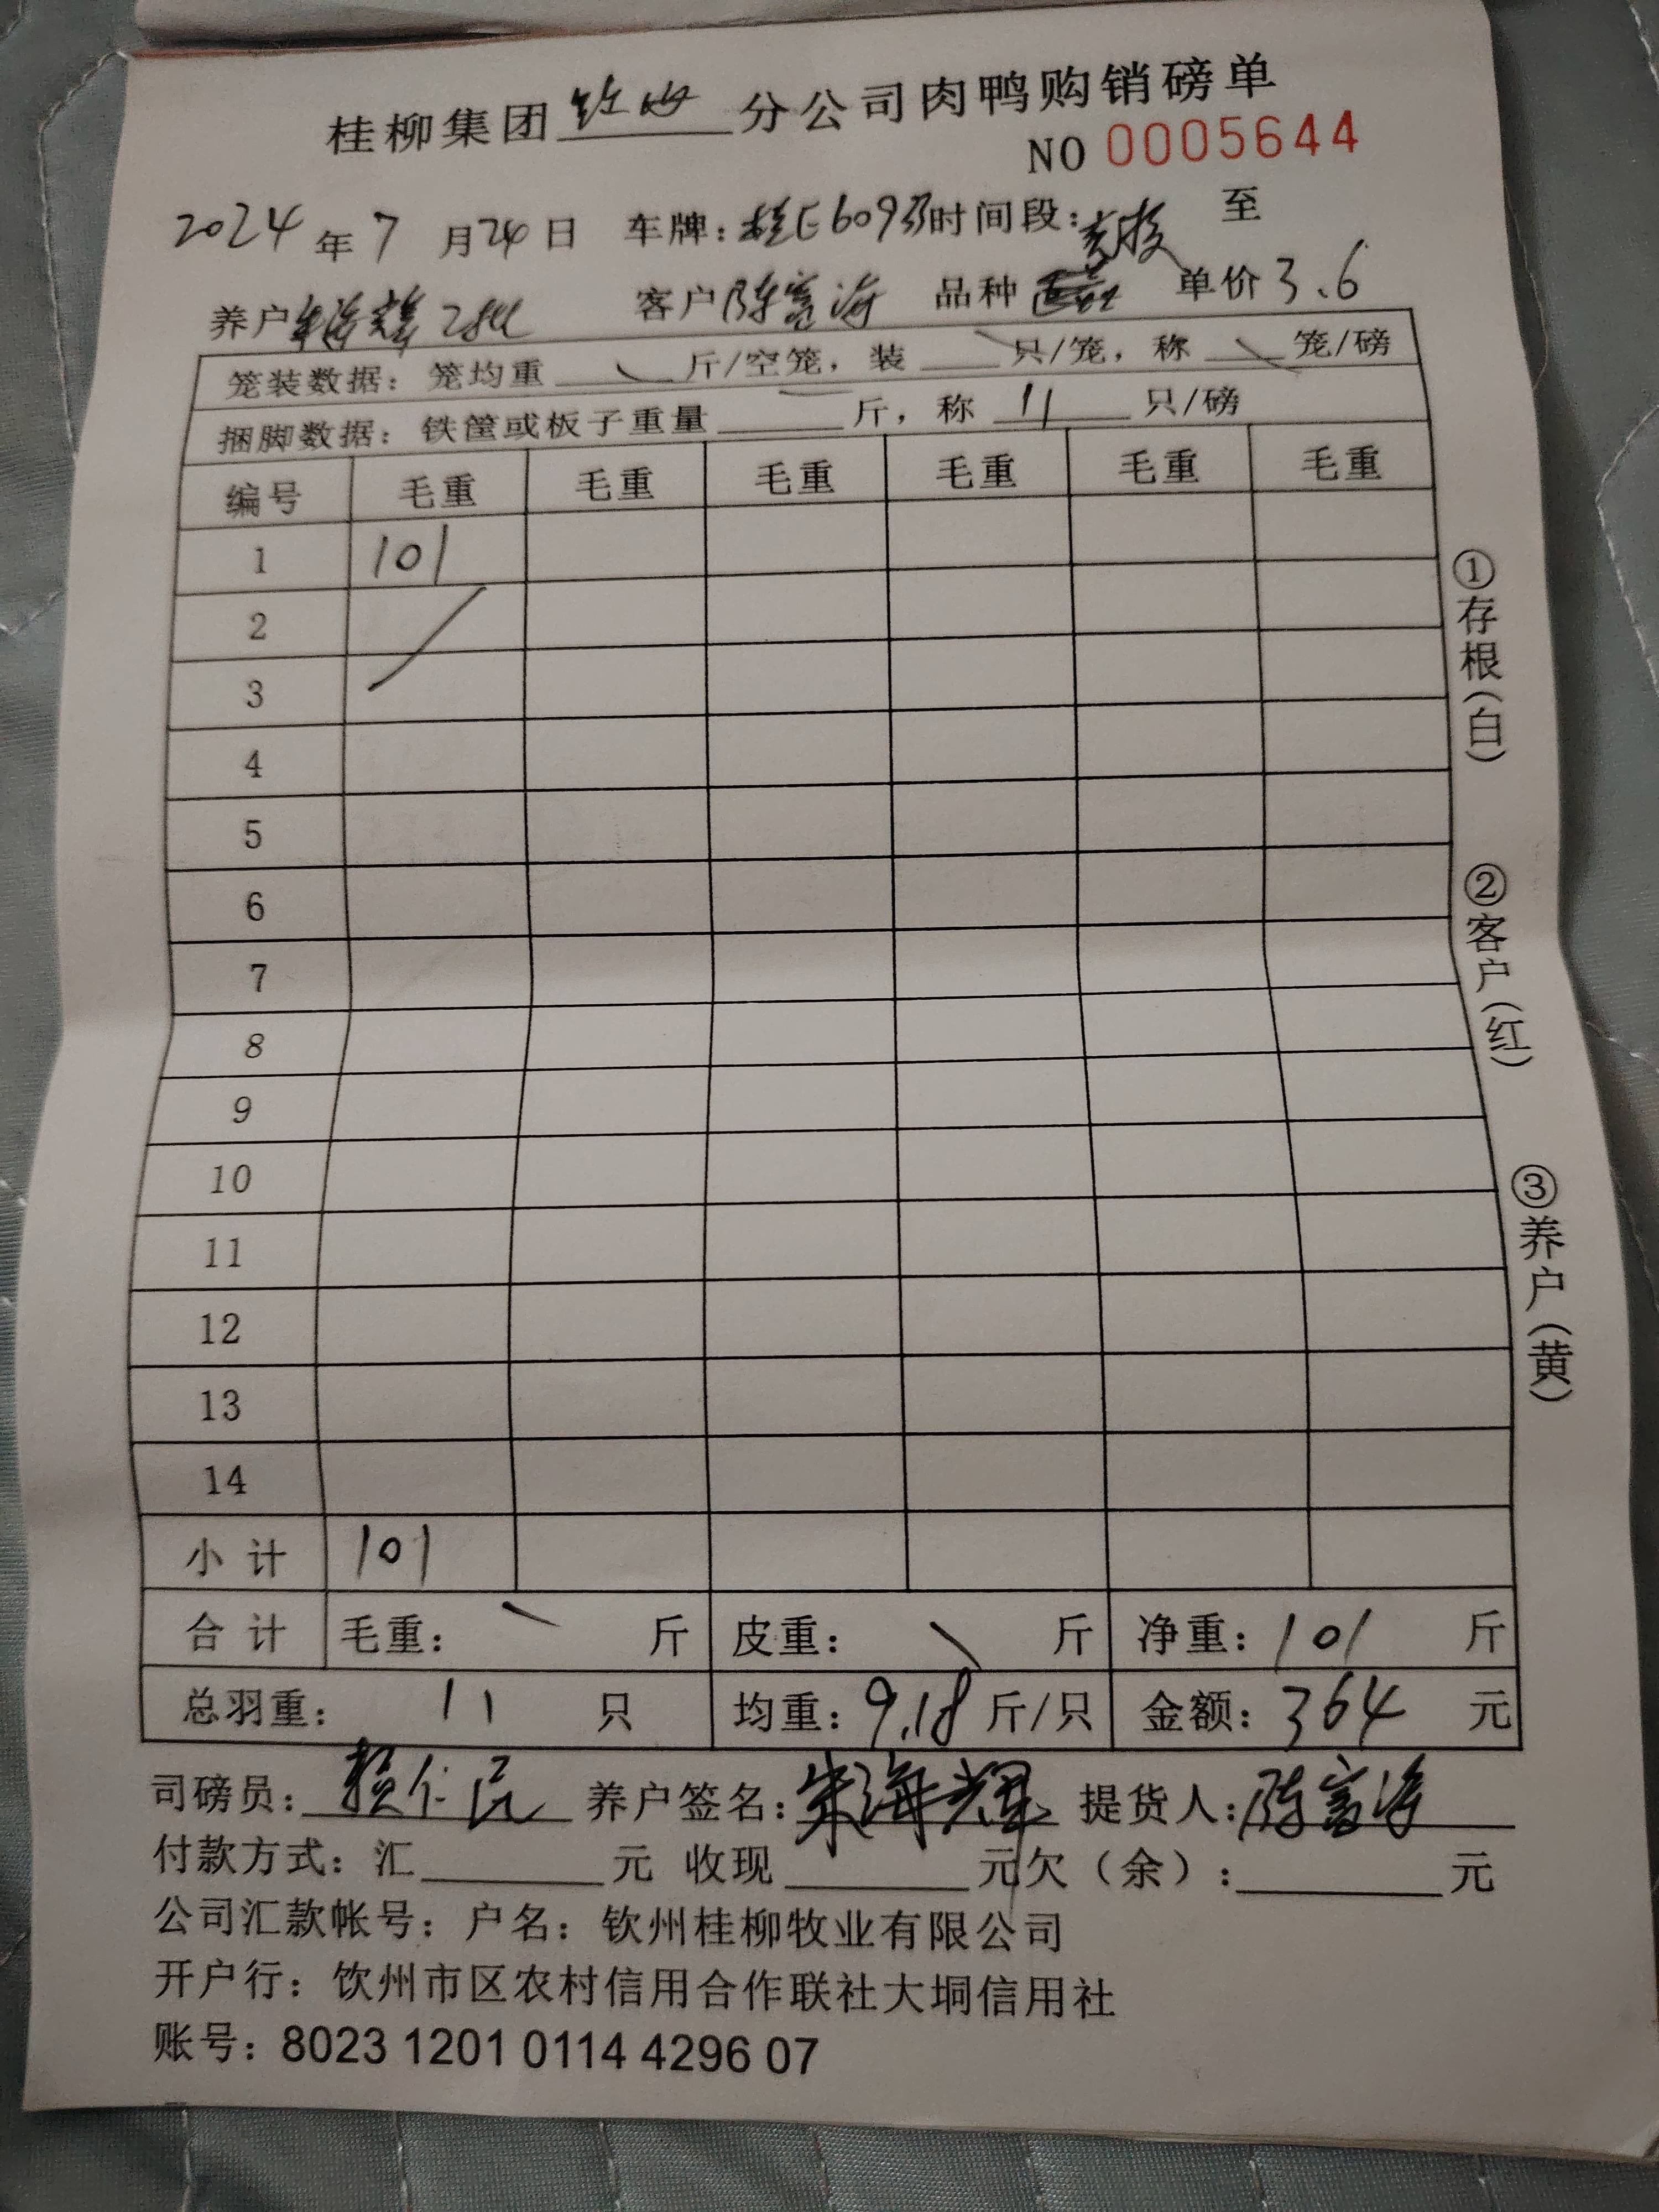 桂柳集团 分公司肉鸭购销磅单
NO 0005644
2024年7月24日 车牌: 时间段: 至
养户 2批 客户陈富海 品种 单价3.6
笼装数据: 笼均重 斤/空笼, 装 只/笼, 称 笼/磅
捆脚数据: 铁筐或板子重量 斤, 称 11 只/磅
编号 毛重 毛重 毛重 毛重 毛重 毛重
1 101
2
3
4
5
6
7
8
9
10
11
12
13
14
小计 101
合计 毛重: 斤 皮重: 斤 净重: 101 斤
总羽重: 11 只 均重: 9.18 斤/只 金额: 364 元
司磅员: 赖仁民 养户签名: 朱海辉 提货人: 陈富海
付款方式: 汇 元 收现 元欠(余): 元
公司汇款帐号: 户名: 钦州桂柳牧业有限公司
开户行: 饮州市区农村信用合作联社大垌信用社
账号: 8023 1201 0114 4296 07
①存根(白)
②客户(红)
③养户(黄)